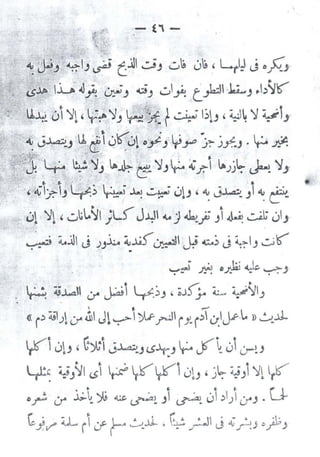 — ٤٦ —
ويكره فى ليلهما ، فان فات وقت الذبح قضى واجبه وفعل به
كالأداء وسقط التطوع بفوات وقته وتعين بقوله هذا هدى
وأضحية لا بالنية ، وإذا تعينت لم يجز بيعها ولا هبتها ، إلا أن يبدلها
بخير منها . ويجوز جز صوفها ونحوه إن كان أنفع لها ويتصدق به
ولا يعطى جازرها أجرته منها ولا يبيع جلدها ولا شيئا منها بل
ينتفع به أو يتصدق به ، وإن تعيبت بعد تعيينها ذبحها وأجزأته ،
وان تلفت بفعله أو تفريطه لزمه البدل كسائر الأمانات ، إلا إن
كانت واجبة فى ذمته قبل التعيين كفدية منذور فى الذمة فتعيب
وجب عليه نظيره بغير تعيب
والأضحية سنة مؤكدة ، وذبحها أفضل من الصدقة بثمنها
لحديث « ما عمل ابن آدم يوم النحر عملا أحب إلى الله من إراقة دم »
ويسن أن يأكل منها ويهدى ويتصدق أثلاثاً ، وإن أكلها
كلها إلا أوقية جاز ، وإن أكلها كلها ضمنها أى الأوقية بمثلها
لحماً . ومن أراد أن يضحى أو يضحى عنه فلا يأخذ من شعره
وظفره وبشرته فى العشر شيئاً ، لحديث مسلم عن أم سلمة مرفوعاً